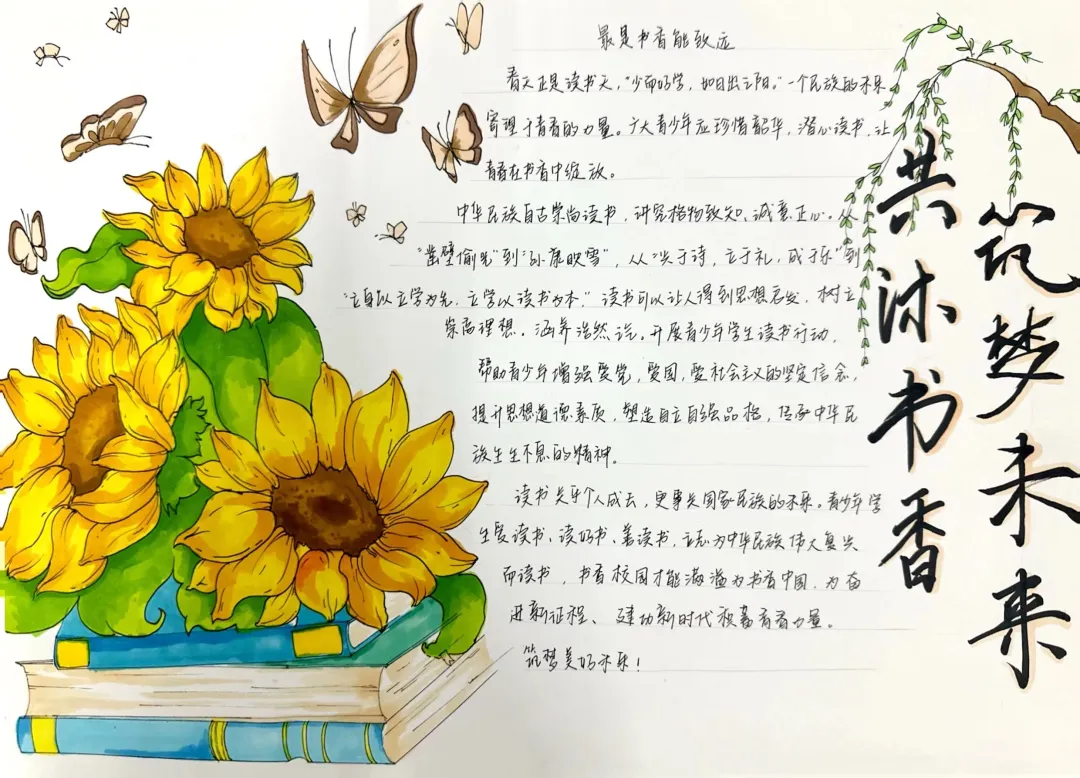 最是书香能致远
春天正是读书天，“少而好学，如日出之阳。”一个民族的未来
寄望于青春的力量。广大青少年应珍惜韶华，潜心读书，让
青春在书香中绽放。
中华民族自古崇尚读书，讲究格物致知、诚意正心。从
“凿壁偷光”到“孙康映雪”，从“兴于诗，立于礼，成于乐”到
“立身以立学为先，立学以读书为本”读书可以让人得到思想启发，树立
崇高理想。涵养浩然之气。开展青少年学生读书行动，
帮助青少年增强爱党，爱国，爱社会主义的坚定信念，
提升思想道德素质，塑造自立自强品格，传承中华民
族生生不息的精神。
读书关乎个人成长，更事关国家民族的未来。青少年学
生爱读书、读好书、善读书，立志为中华民族伟大复兴
而读书，书香校园才能满溢为书香中国，为奋
进新征程、建功新时代积蓄青春力量。
筑梦美好未来！
筑梦未来
共沐书香